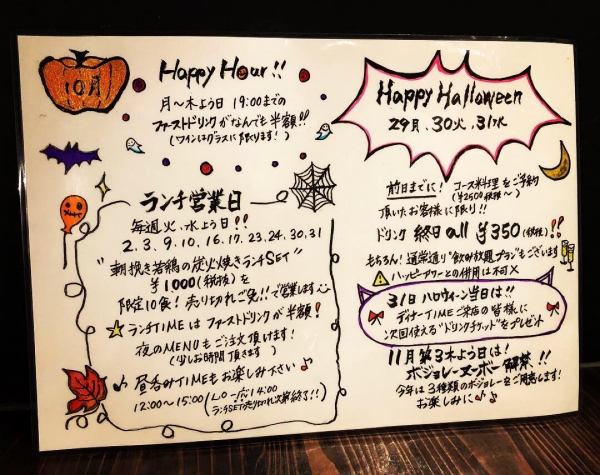 10月
Happy Hour!!
月〜木よう日 19:00までの
ファーストドリンクがなんでも半額!!
(ワインはグラスに限ります!)
ランチ営業日
毎週火、水よう日!!
2.3.9.10.16.17.23.24.30.31
"朝挽き若鶏の炭火焼きランチSET"
¥1000(税抜)を
限定10食!売り切れご免!!で営業します
☆ランチTIMEはファーストドリンクが半額!
夜のMENUもご注文頂けます!
(少しお時間頂きます)
♪昼呑みTIMEもお楽しみ下さい♪
12:00〜15:00
14:00
ランチSET売り切れ次第終了!!
Happy Halloween
29月、30火、31水
前日までに!コース料理をご予約
(¥2500税抜〜)
頂いたお客様に限り!!
ドリンク 終日all ¥350(税抜)!!
もちろん!通常通り"飲み放題プラン"もございます
⚠ハッピーアワーとの併用は不可×
31日ハロウィーン当日は!!
ディナーTIMEご来店の皆様に
次回使える"ドリンクチケット"をプレゼント
11月第3木よう日は!
ボジョレーヌーボー解禁!!
今年は3種類のボジョレーをご用意します!
お楽しみに♪♪